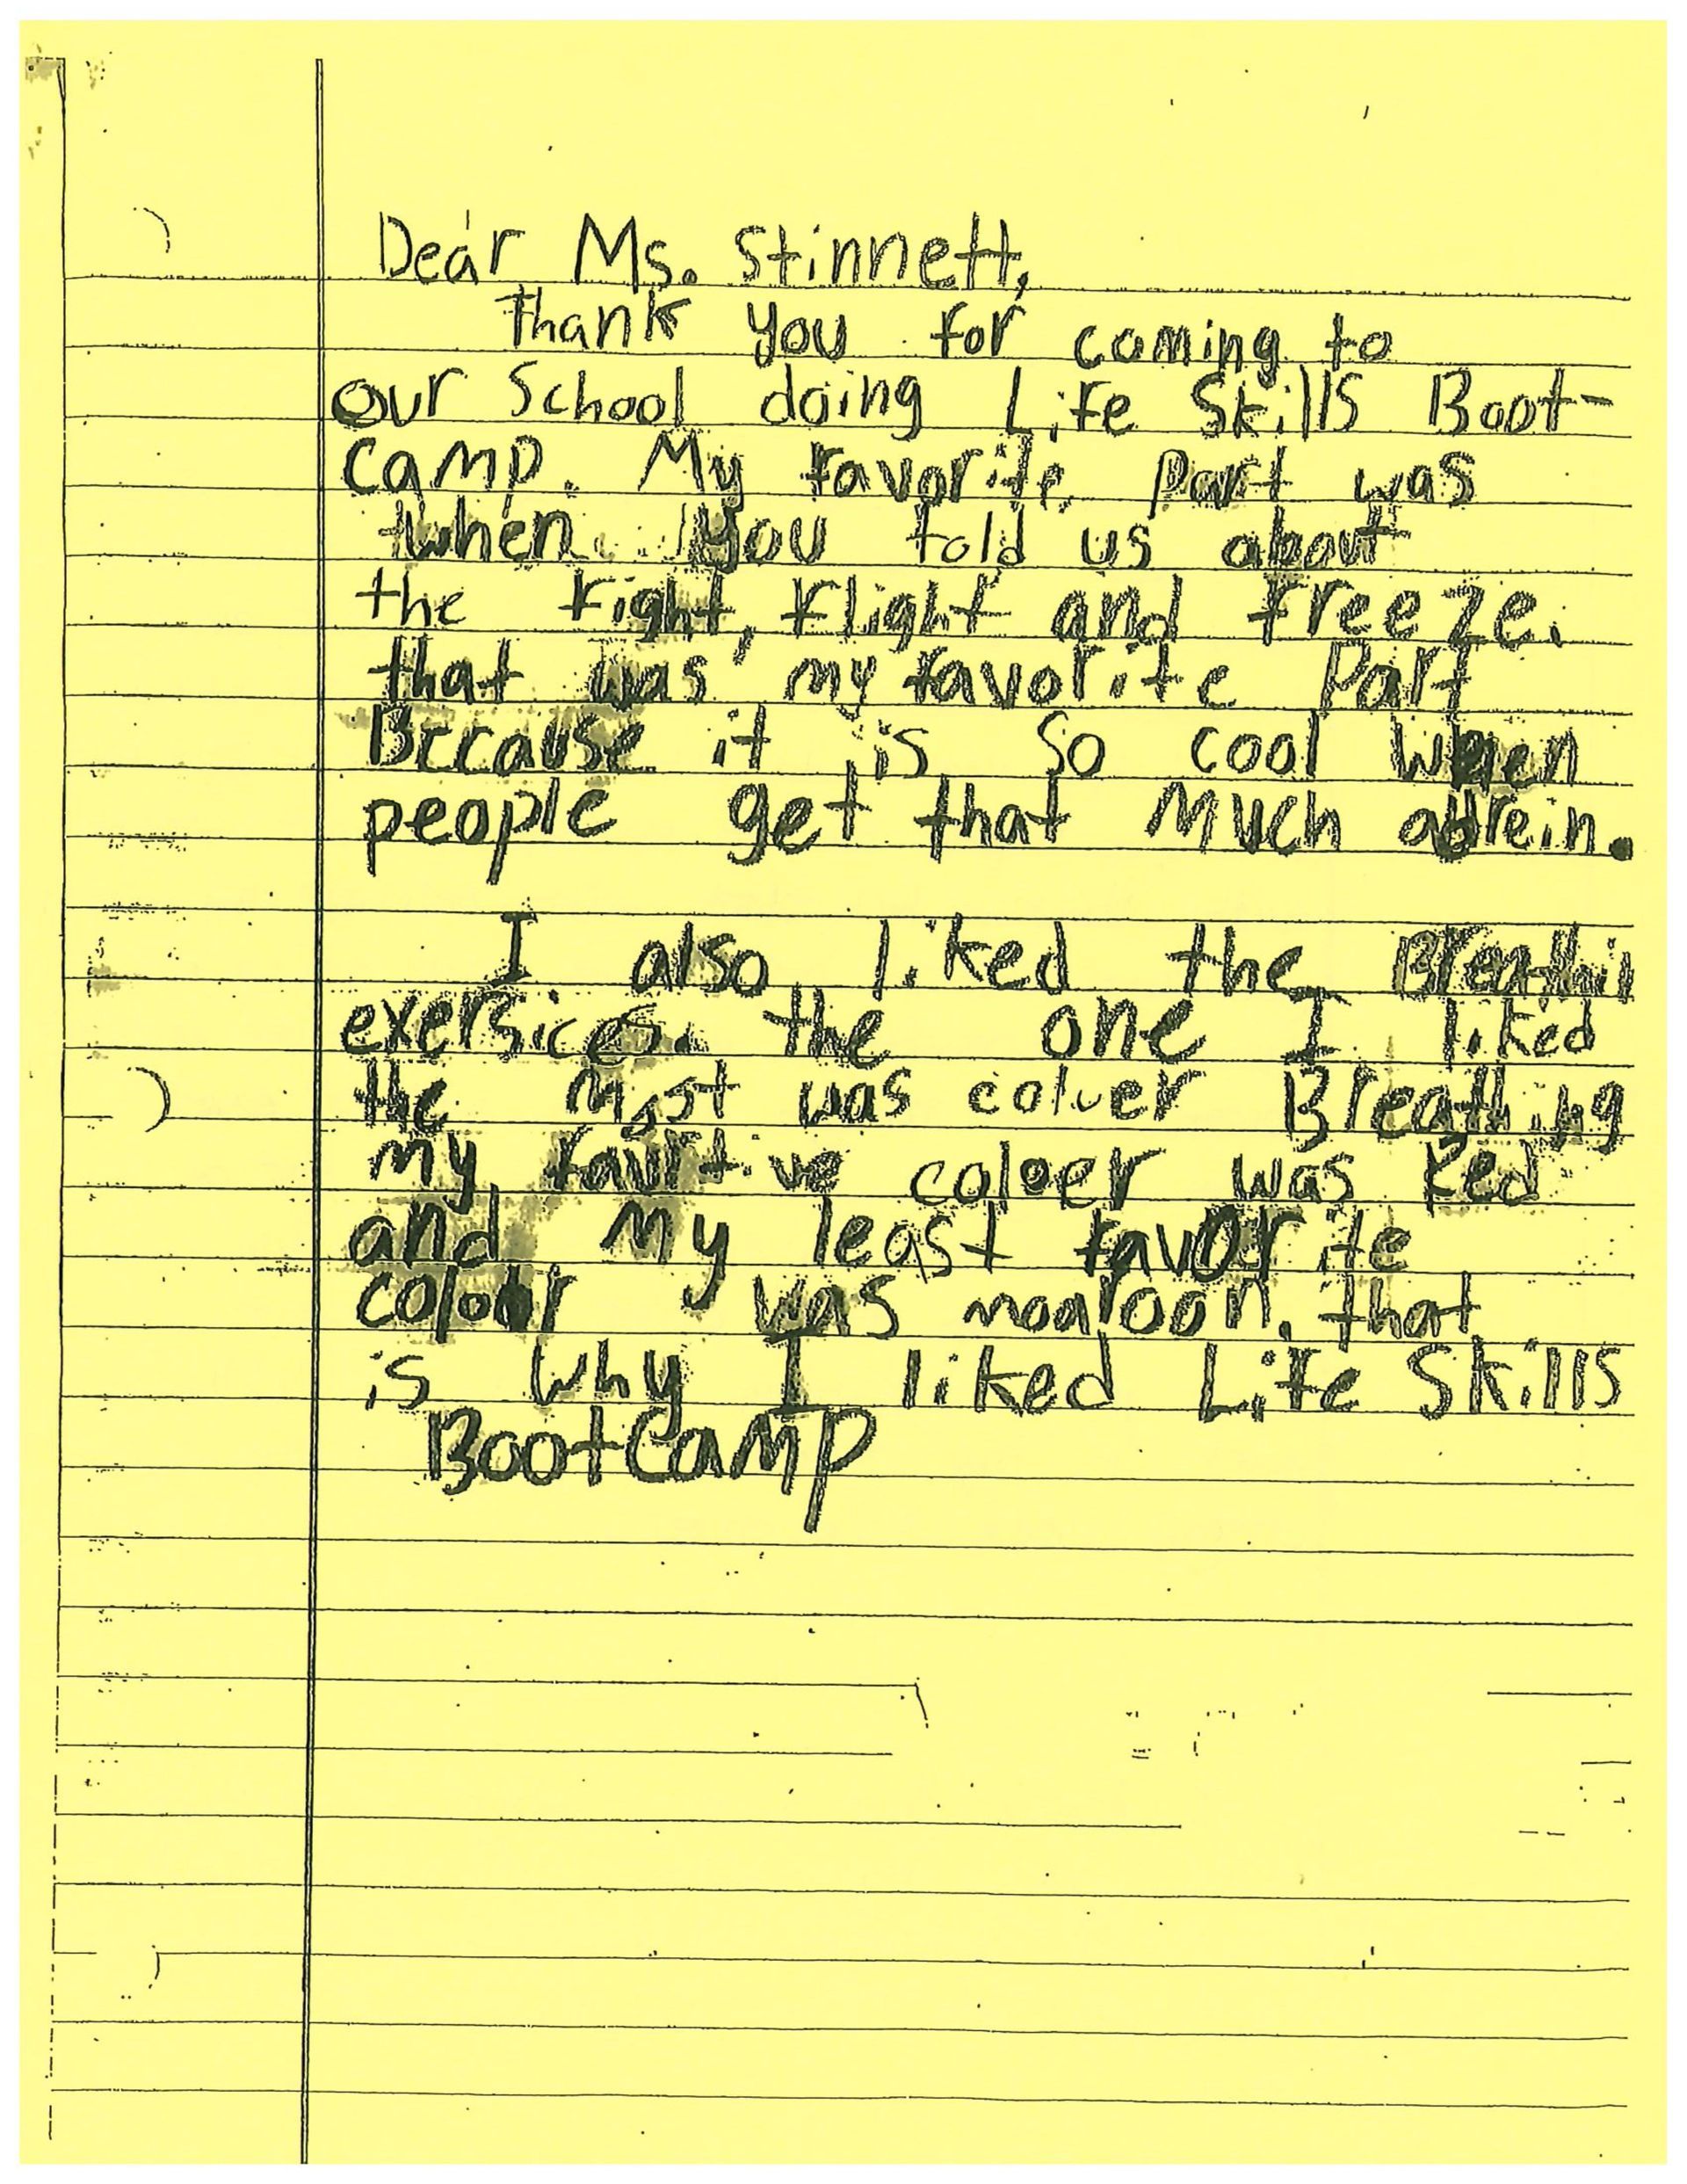 Dear Ms. Stinnett,
Thank you for coming to
our School doing Life Skills Boot-
camp. My favorite part was
when you told us about
the Fight, Flight and Freeze.
that was my favorite Part
Because it is So cool when
people get that Much adrein.
I also liked the Breathin
exersices. the one I liked
the Most was coluer Breathing
my coloer was Red
and My least favorite
colour was moaroon. that
is why I liked Life Skills
BootCamp